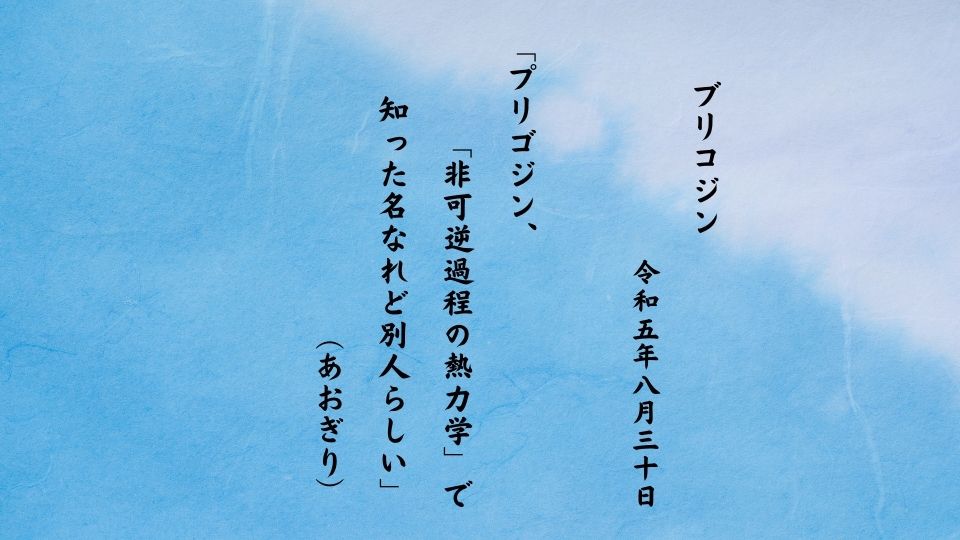 ブリコジン
令和五年八月三十日
「プリゴジン、
「非可逆過程の熱力学」で
知った名なれど別人らしい」
(あおぎり)